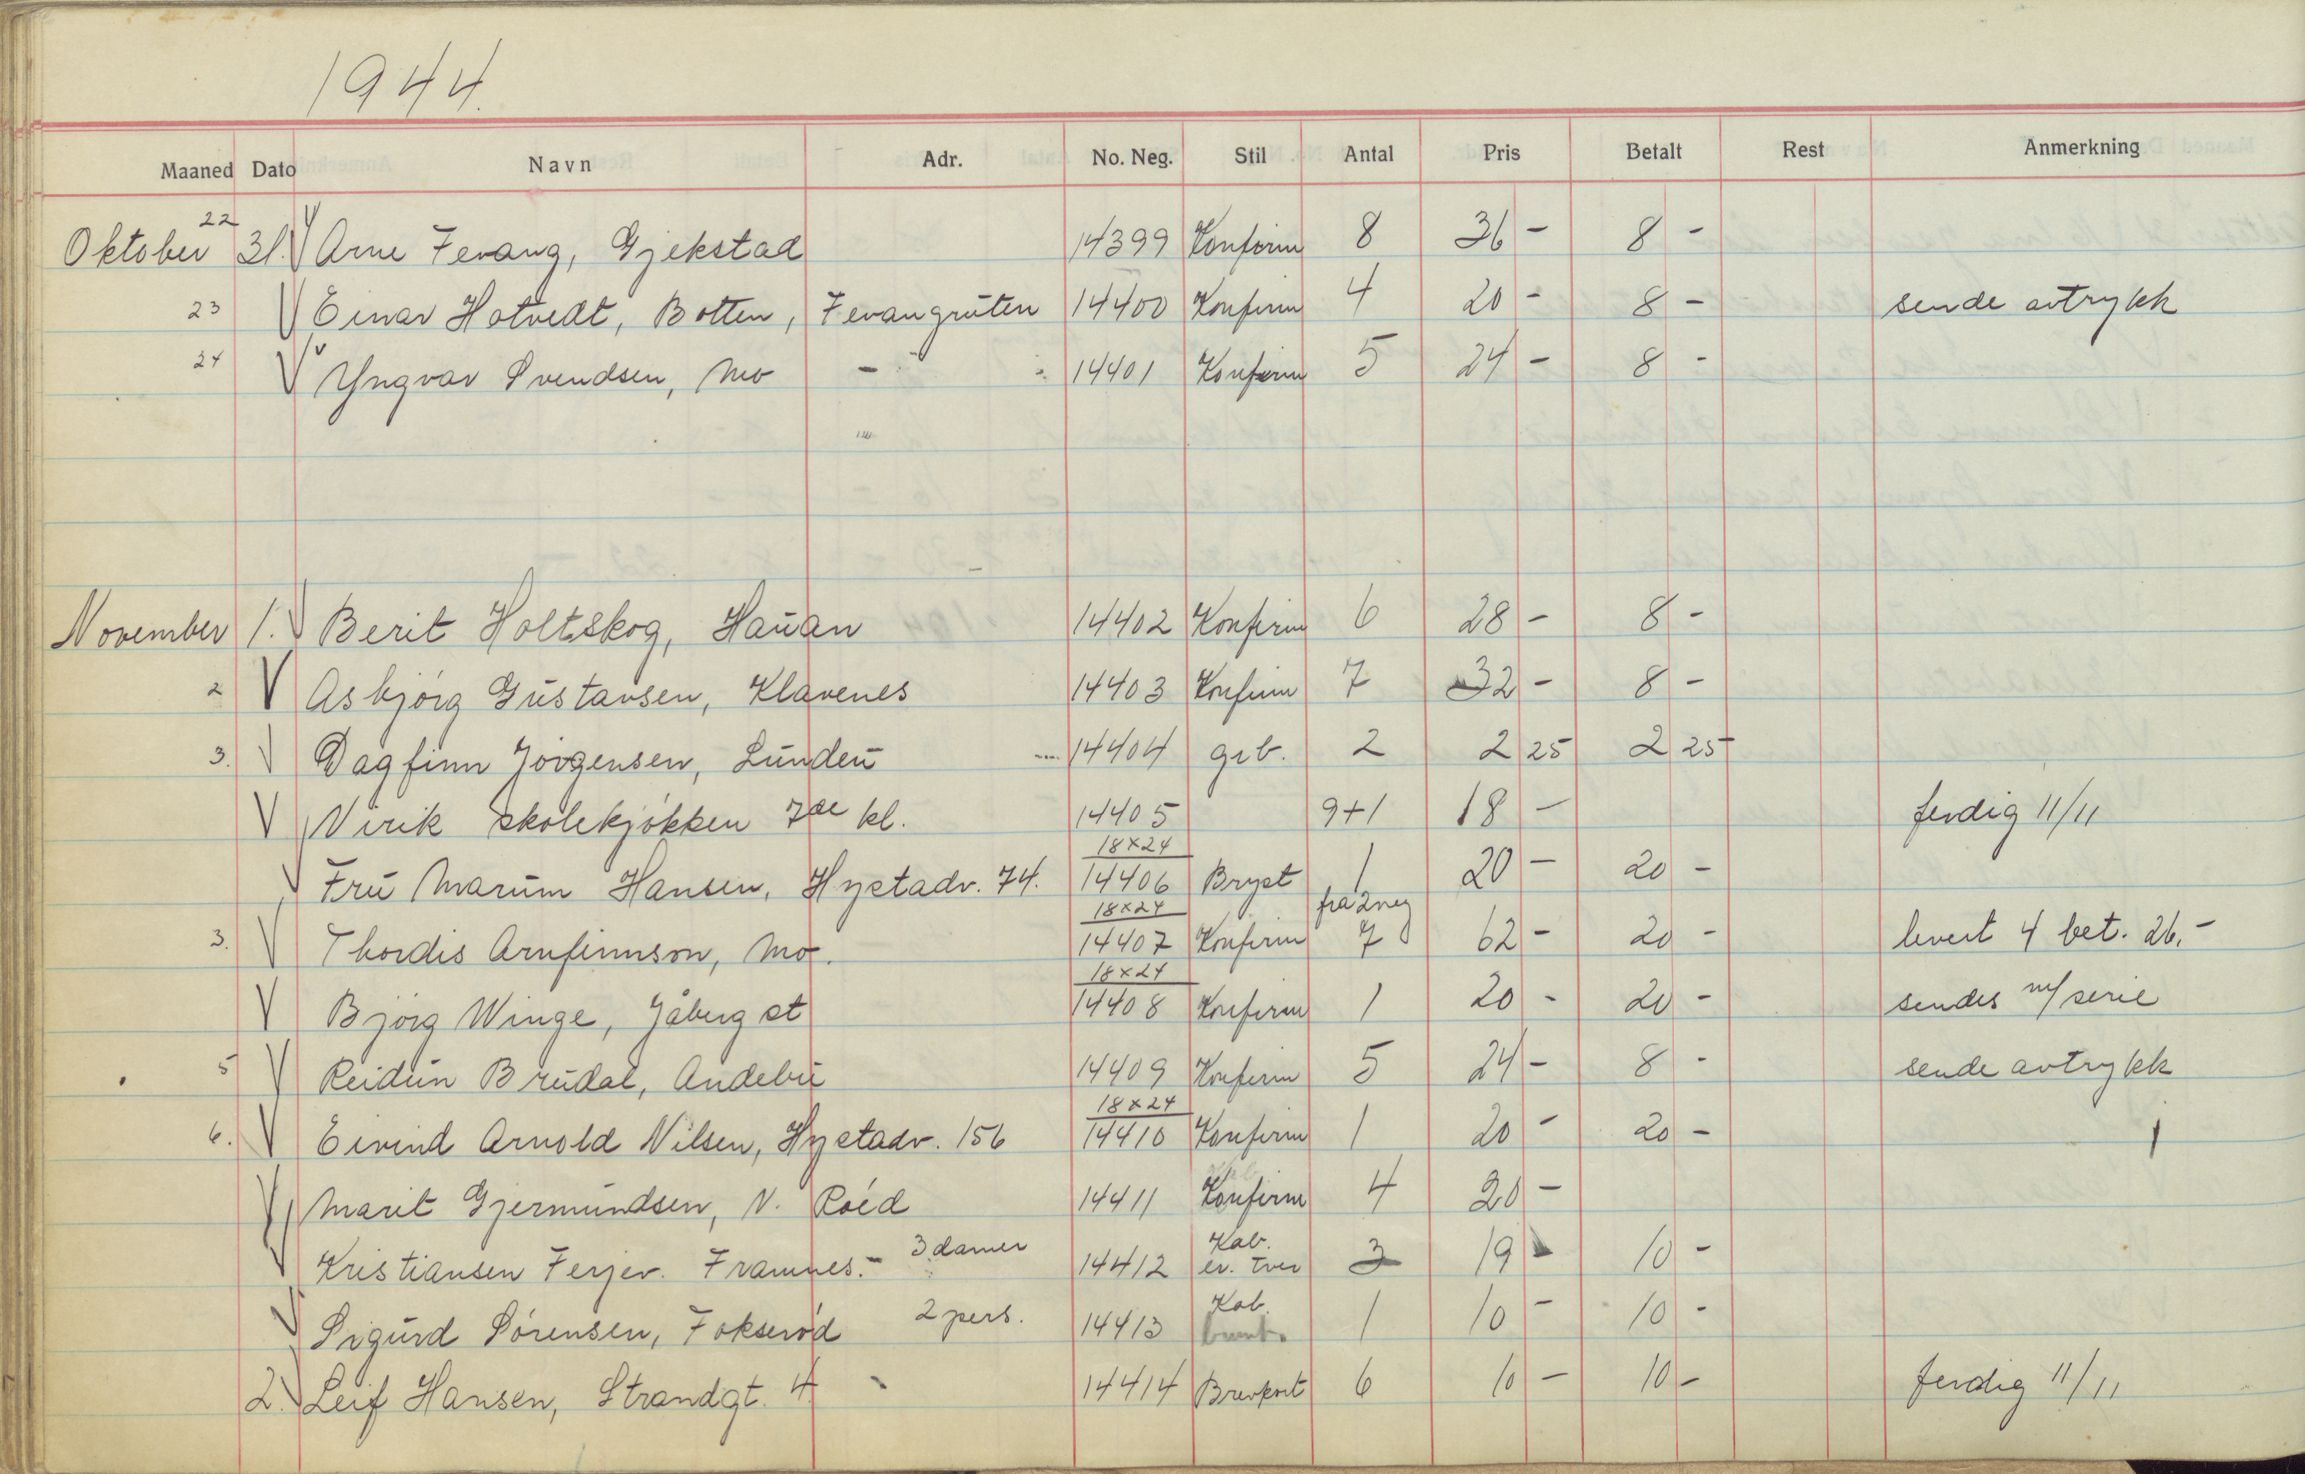 1944.
Maaned Dato Navn Adr. No. Neg. Stil Antal Pris Betalt Rest Anmerkning
Oktober 22 31. V Arne Fevang, Gjekstad 14399 Konfirm 8 36 - 8 -
23 V Einar Hotvedt, Botten, Fevangruten 14400 Konfirm 4 20 - 8 - sende avtrykk
24 V Yngvar Svendsen, Mo - " - 14401 Konfirm 5 24 - 8 -
November 1. V Berit Holtskog, Hauan 14402 Konfirm 6 28 - 8 -
2 V Asbjörg Gustavsen, Klavenes 14403 Konfirm 7 32 - 8 -
3. V Dagfinn Jörgensen, Lunden 14404 grb. 2 2 25 2 25
V Virik skolekjökken 7de kl. 14405 9+1 18 - ferdig 11/11
V Fru Marum Hansen, Hystadv. 74. 18x24 14406 Bryst 1 20 - 20 -
3. V Thordis Arnfinnson, Mo. 18x24 14407 Konfirm fra 2 neg 7 62 - 20 - levert 4 bet. 26,-
V Björg Winge, Jåberg st 18x24 14408 Konfirm 1 20 - 20 - sendes m/serie
5 V Reidun Brudal, Andebu 14409 Konfirm 5 24 - 8 - sende avtrykk
6. V Eivind Arnold Nilsen, Hystadv. 156 18x24 14410 Konfirm 1 20 - 20 -
V Marit Gjermundsen, N. Röed 14411 Konfirm 4 20 -
V Kristiansen Ferjev. Framnes.- 3 damer 14412 Kab. ev. tver 3 19 - 10 -
V Sigurd Sörensen, Fokseröd 2 pers. 14413 Kab. 1 10 - 10 -
2. V Leif Hansen, Strandgt. 4. 14414 Brevkort 6 10 - 10 - ferdig 11/11